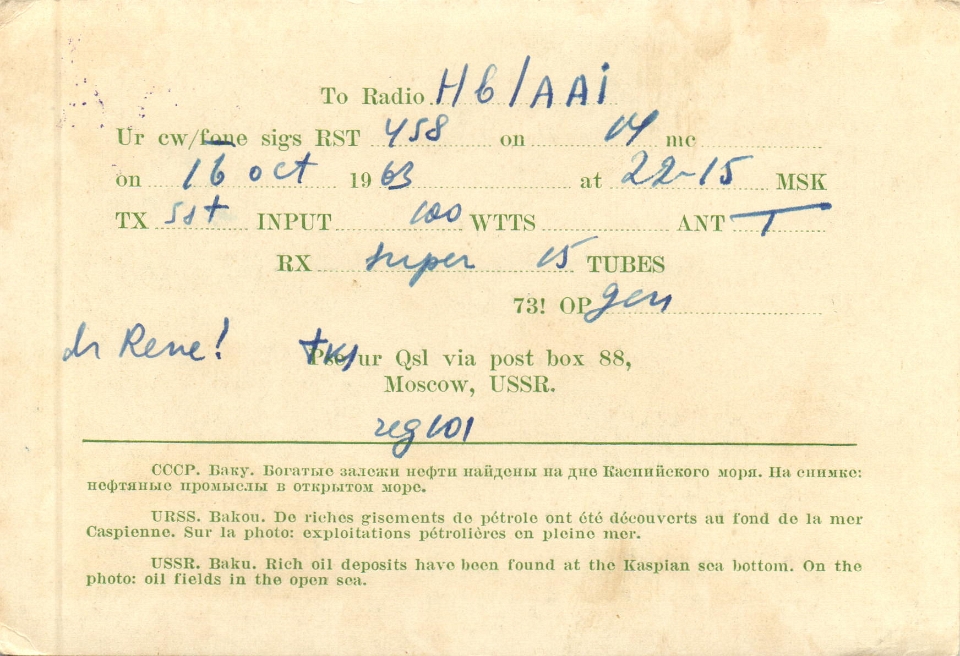 To Radio HB/AAI
Ur cw/fone sigs RST 458 on 14 mc
on 16 oct 1963 at 22-15 MSK
TX sst INPUT 100 WTTS ANT T
RX super 15 TUBES
73! OP gen
dr Rene! tks ur Qsl via post box 88,
Moscow, USSR.
reg 101
СССР. Баку. Богатые залежи нефти найдены на дне Каспийского моря. На снимке:
нефтяные промыслы в открытом море.
URSS. Bakou. De riches gisements de pétrole ont été découverts au fond de la mer
Caspienne. Sur la photo: exploitations pétrolières en pleine mer.
USSR. Baku. Rich oil deposits have been found at the Kaspian sea bottom. On the
photo: oil fields in the open sea.